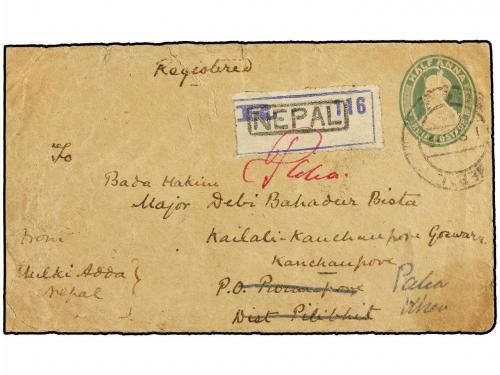 Registered
HALF ANNA
116
NEPAL
To
Bada Hakim
Major Debi Bahadur Bista
Kailali-Kanchanpore Goswara
Kanchanpore
P.O. Puranpore
Dist Pilibhit
From
Mulki Adda
Nepal
Palia